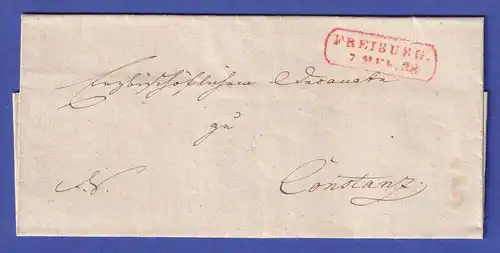 FREIBURG.
7 MRZ. 28
Erzbischöflichem Decanate
zu
Constanz.